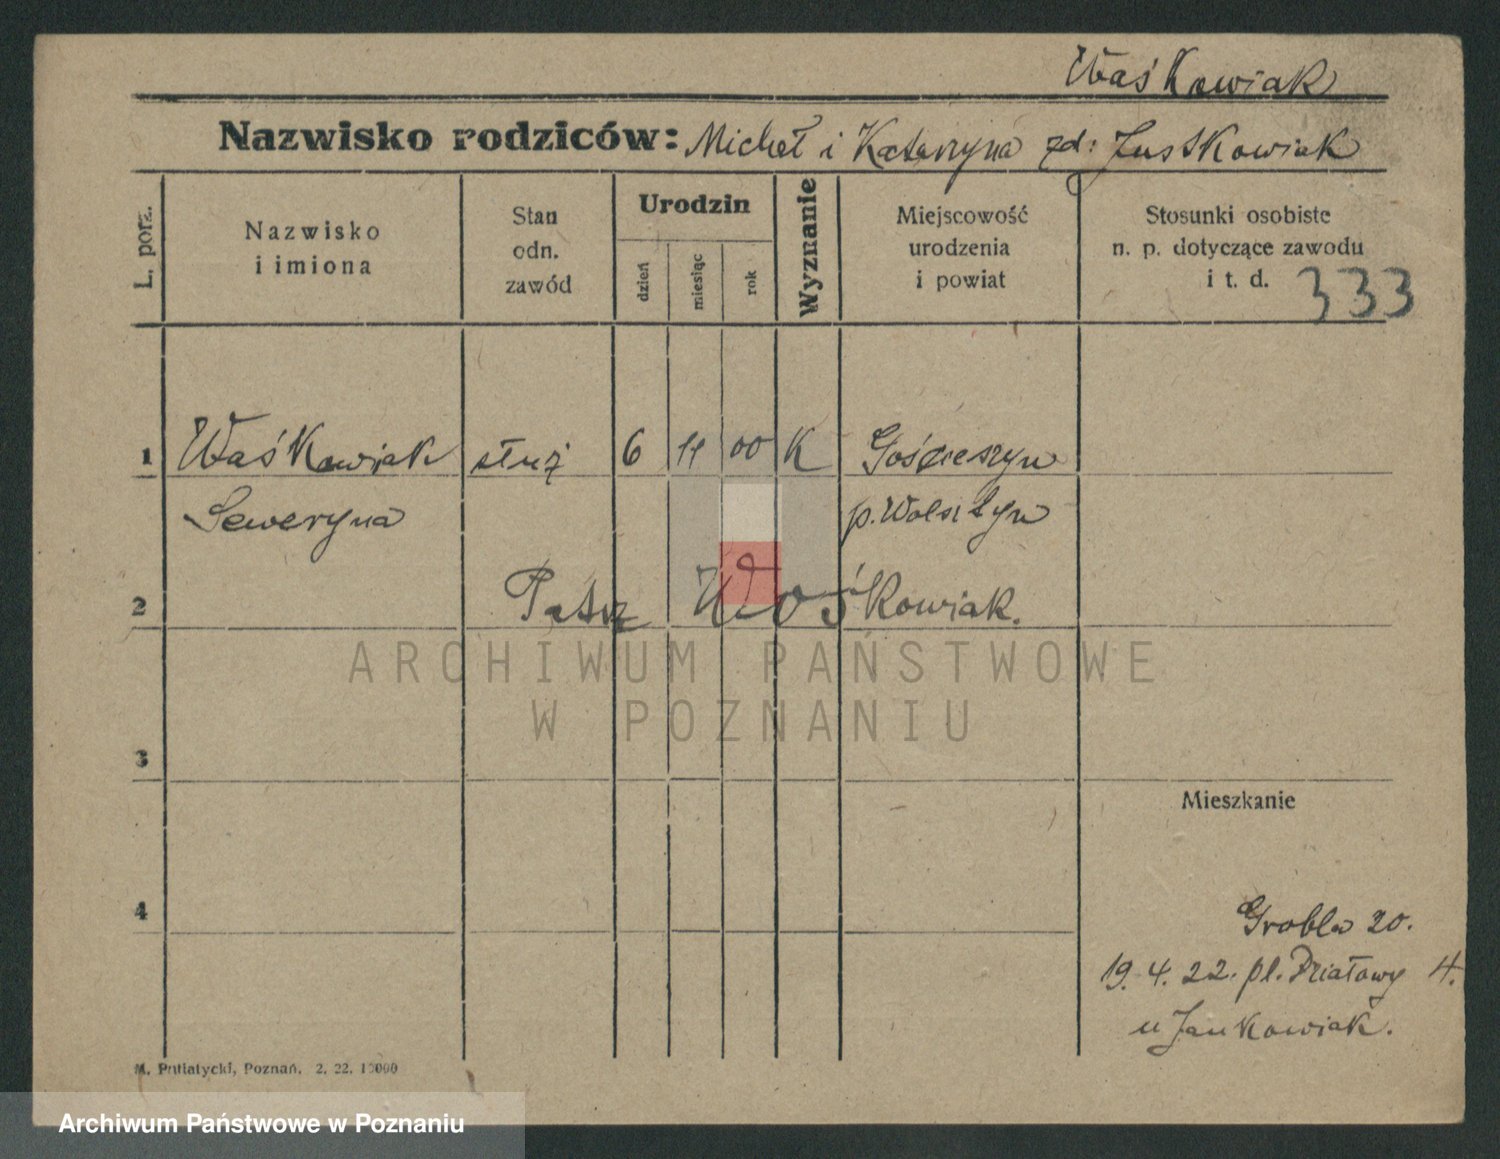 Waśkowiak
Nazwisko rodziców: Michał i Katarzyna zd: Juskowiak
L. porz.
Nazwisko
i imiona
Stan
odn.
zawód
Urodzin
dzień
miesiąc
rok
Wyznanie
Miejscowość
urodzenia
i powiat
Stosunki osobiste
n. p. dotyczące zawodu
i t. d.
333
1 Waśkowiak służ 6 11 00 K Gościeszyn
Seweryna p. Wolsztyn
2 Patrz Wośkowiak.
ARCHIWUM PAŃSTWOWE
W POZNANIU
3
Mieszkanie
4
Grobla 20.
19. 4. 22. pl. Działowy 4.
u Jankowiak.
M. Putiatycki, Poznań. 2. 22. 10000
Archiwum Państwowe w Poznaniu